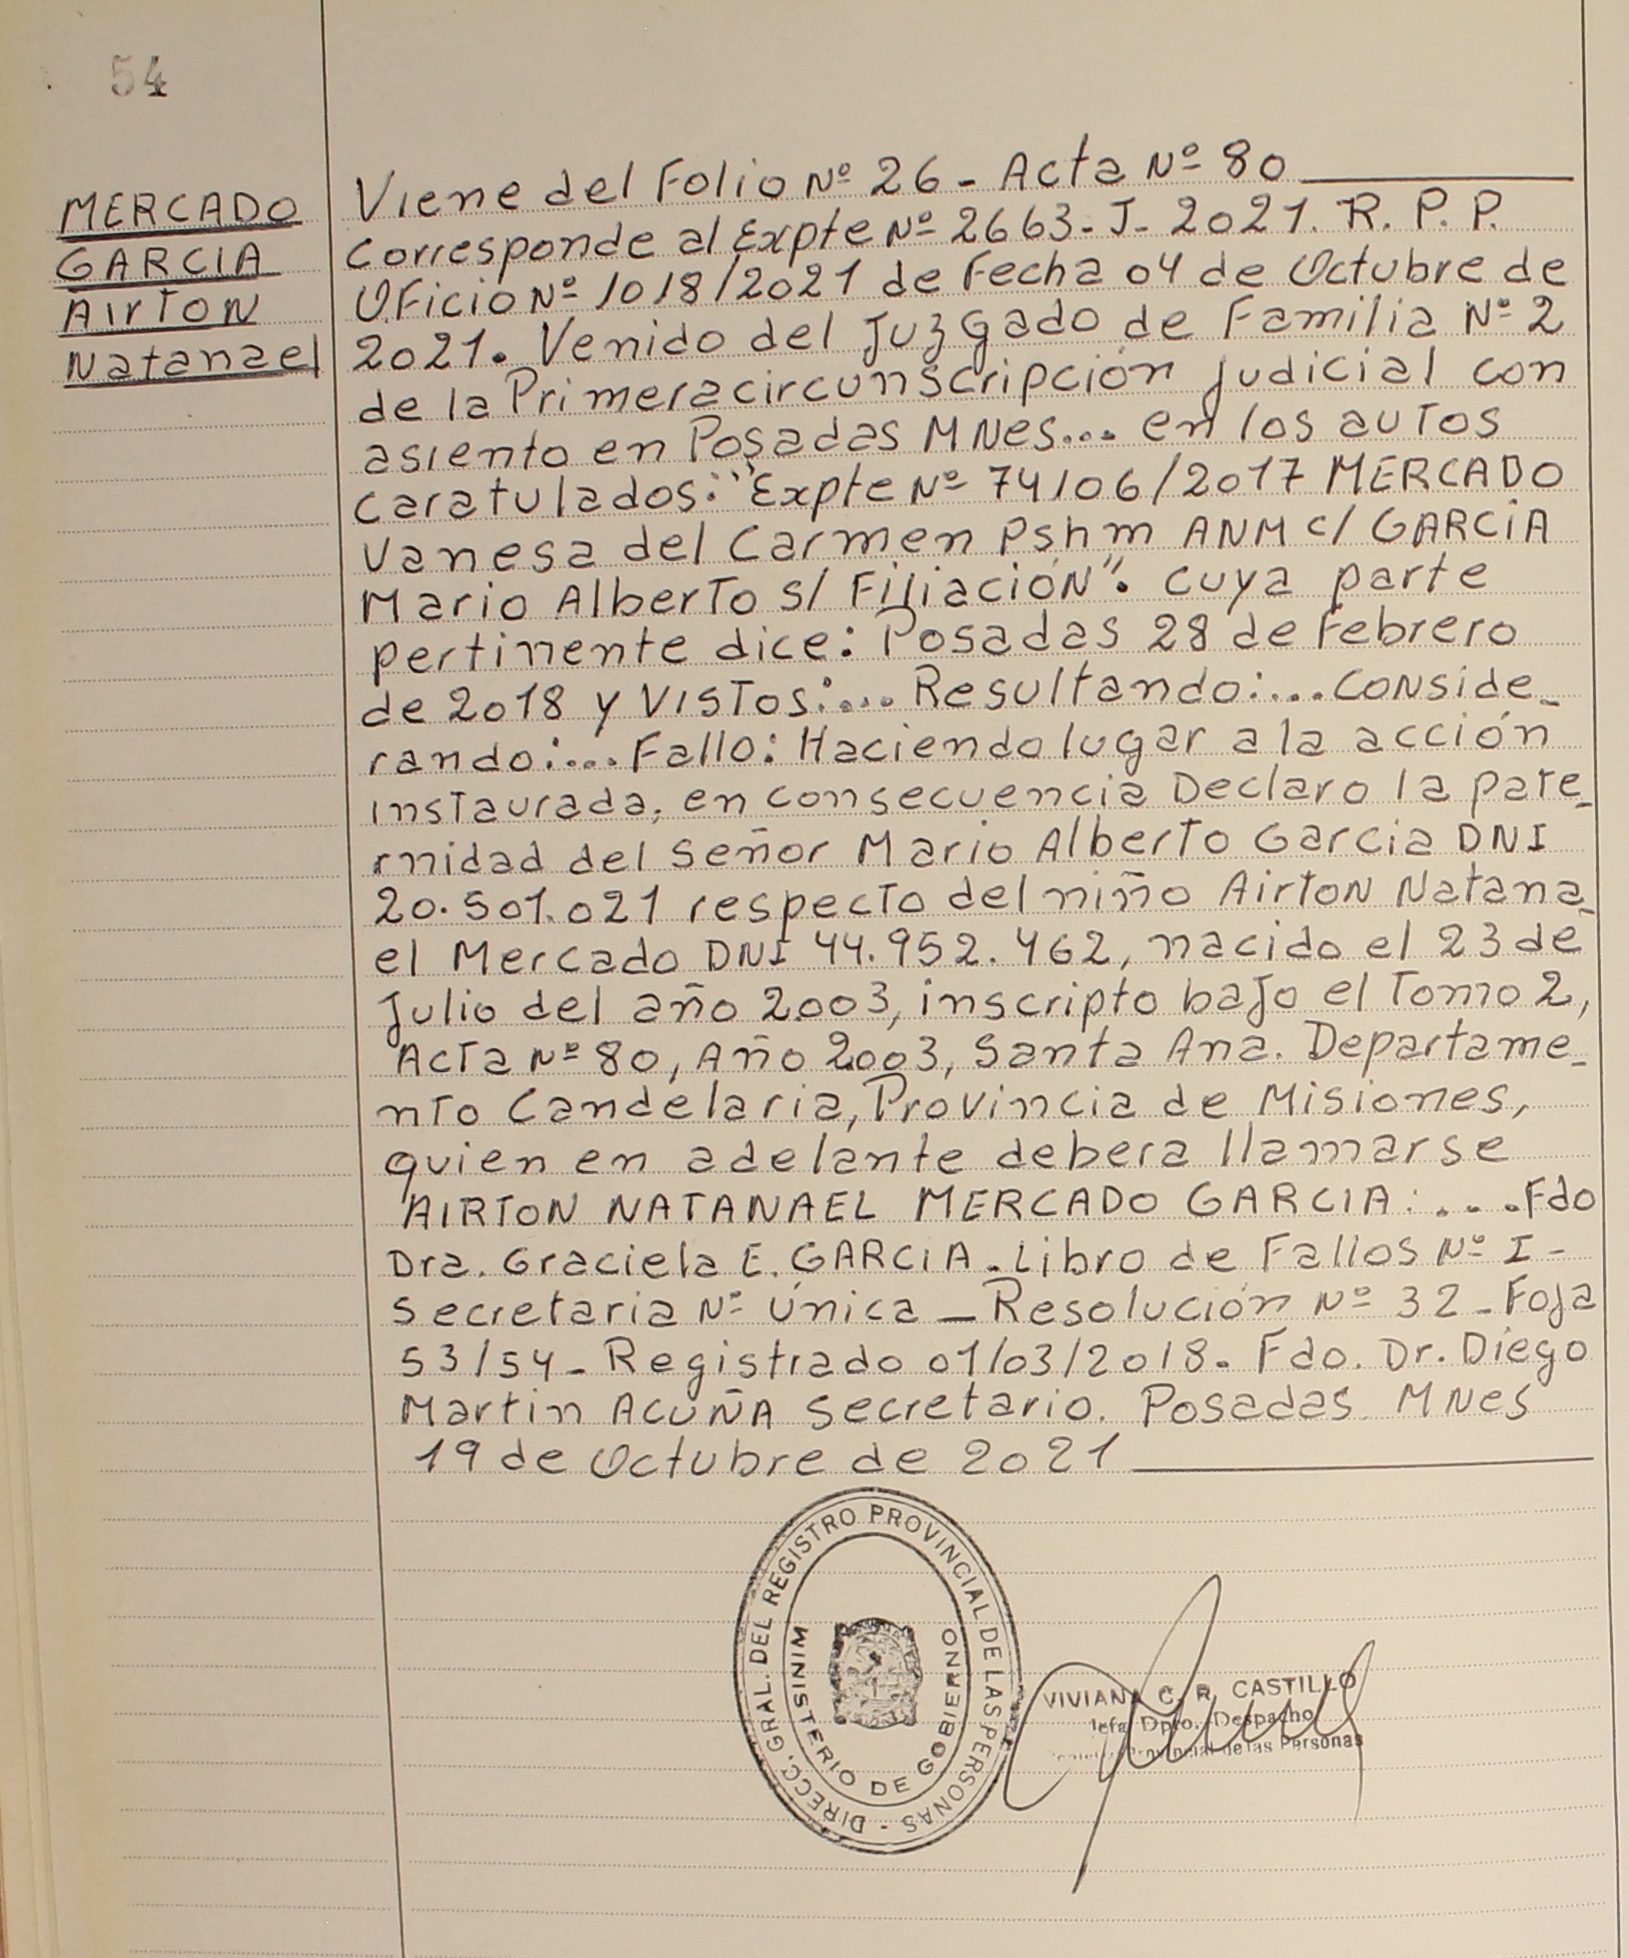 54
MERCADO
GARCIA
AIRTON
Natanael
Viene del Folio Nº 26 - Acta Nº 80
Corresponde al Expte Nº 2663-J-2021. R. P. P.
Oficio Nº 1018/2021 de Fecha 04 de Octubre de
2021. Venido del Juzgado de Familia Nº 2
de la Primera circunscripción judicial con
asiento en Posadas MNes... en los autos
caratulados: "Expte Nº 74106/2017 MERCADO
Vanesa del Carmen Pshm ANM c/ GARCIA
Mario Alberto s/ Filiación". cuya parte
pertinente dice: Posadas 28 de Febrero
de 2018 y VISTOS:... Resultando:... Conside_
rando:... Fallo: Haciendo lugar a la acción
instaurada; en consecuencia Declaro la pate_
rnidad del señor Mario Alberto Garcia DNI
20.501.021 respecto del niño Airton Natana_
el Mercado DNI 44.952.462, nacido el 23 de
Julio del año 2003, inscripto bajo el Tomo 2,
Acta Nº 80, Año 2003, Santa Ana. Departame_
nto Candelaria, Provincia de Misiones,
quien en adelante debera llamarse
AIRTON NATANAEL MERCADO GARCIA: ....Fdo
Dra. Graciela E. GARCIA. Libro de Fallos Nº I -
Secretaria Nº Única - Resolución Nº 32 - Foja
53/54 - Registrado 01/03/2018. Fdo. Dr. Diego
Martin ACUÑA Secretario. Posadas MNes
19 de Octubre de 2021
DIRECC. GRAL. DEL REGISTRO PROVINCIAL DE LAS PERSONAS -
MINISTERIO DE GOBIERNO
VIVIANA C. R. CASTILLO
Jefa Dpto. Despacho
Provincial de las Personas